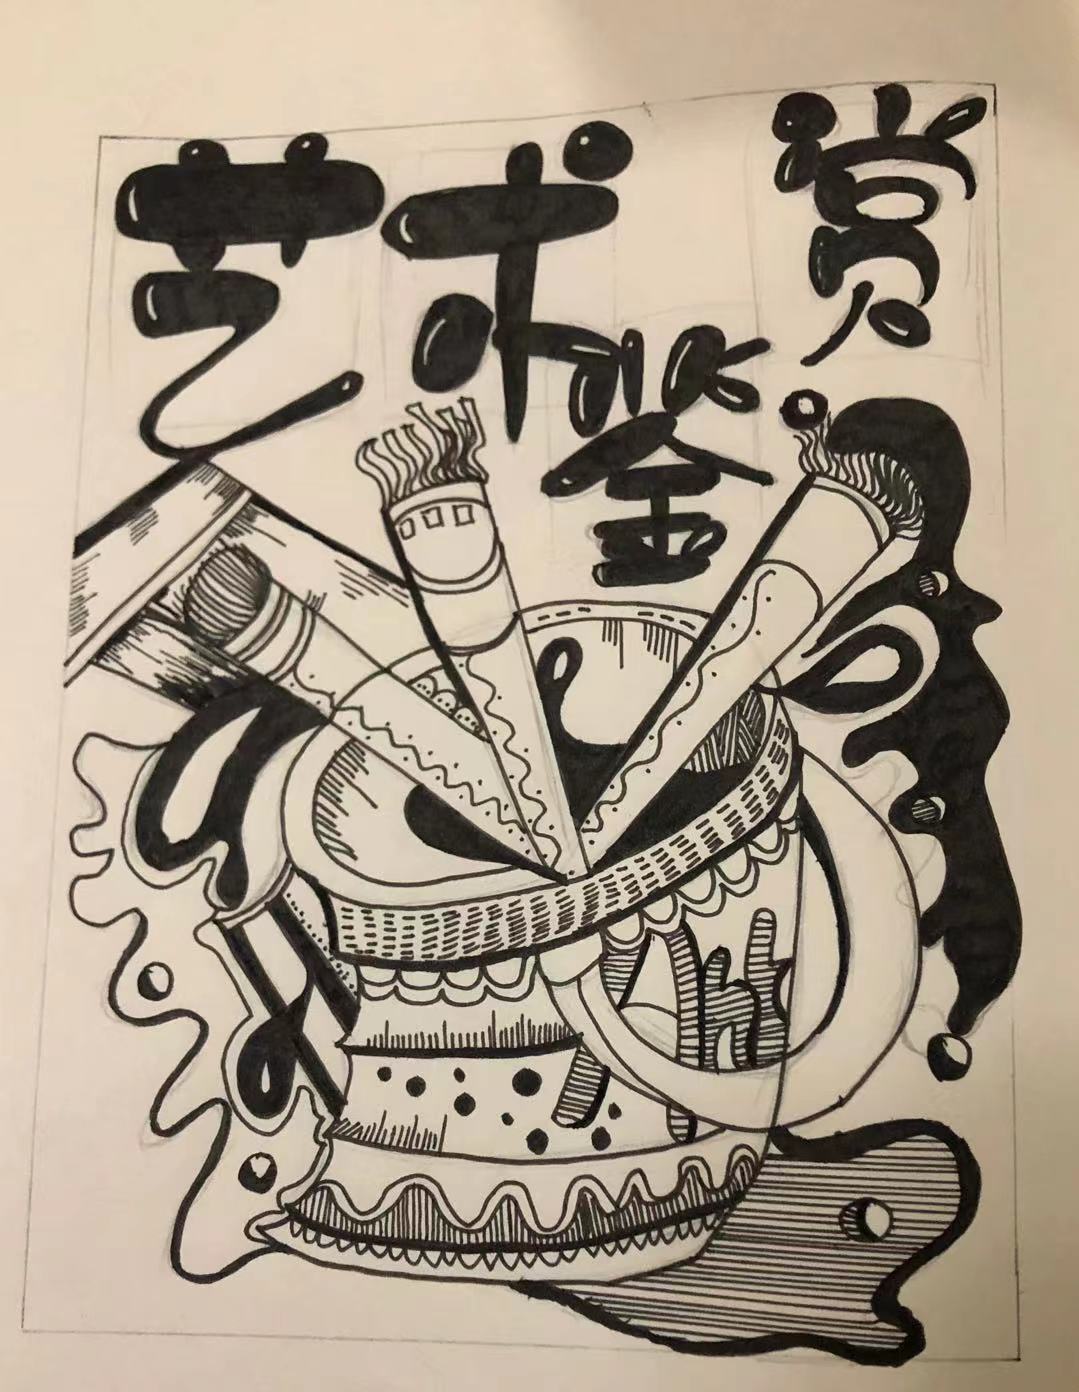 艺术鉴赏
Art